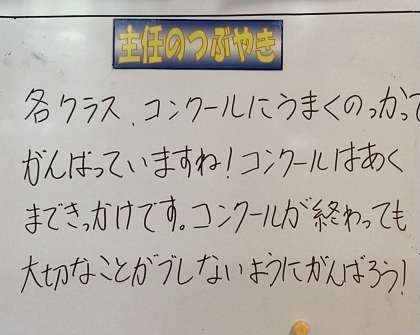 主任のつぶやき
各クラス、コンクールにうまくのっかって
がんばっていますね!コンクールはあく
まできっかけです。コンクールが終わっても
大切なことがブレないようにがんばろう!